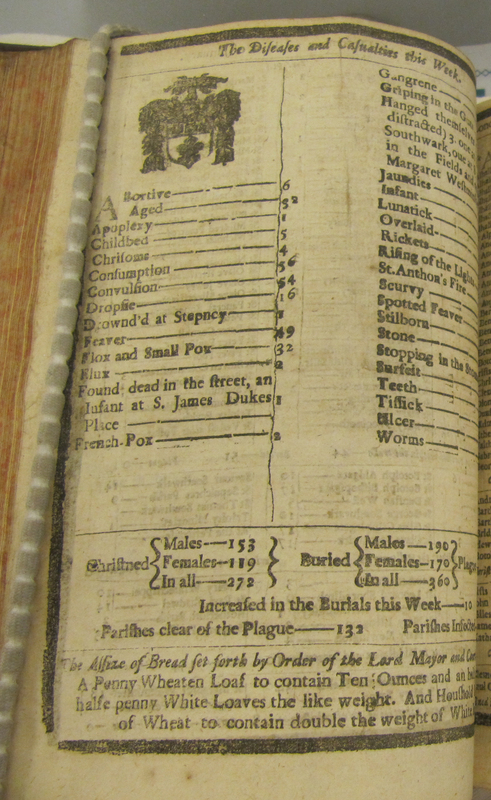 The Diseases and Casualties this Week.
Abortive 6
Aged 52
Apoplexy 1
Childbed 5
Chrisoms 4
Consumption 56
Convulsion 54
Dropsie 16
Drown'd at Stepney 1
Feaver 49
Flox and Small Pox 32
Flux 2
Found dead in the street, an
Infant at S. James Dukes 1
Place
French-Pox 2
Gangrene
Griping in the
Hanged
distracted) 3. one
Southwark, one
in the Fields and
Margaret
Jaundies
Infant
Lunatick
Overlaid
Rickets
Rising of the Lights
St. Anthon's Fire
Scurvy
Spotted Feaver
Stilborn
Stone
Stopping in the
Surfeit
Teeth
Tissick
Ulcer
Worms
Christned
Males 153
Females 119
In all 272
Buried
Males 190
Females 170
In all 360
Increased in the Burials this Week 10
Parishes clear of the Plague 132 Parishes
The Assize of Bread set forth by Order of the Lord Mayor and
A Penny Wheaten Loaf to contain Ten Ounces and an
halfe penny White Loaves the like weight. And
of Wheat to contain double the weight of